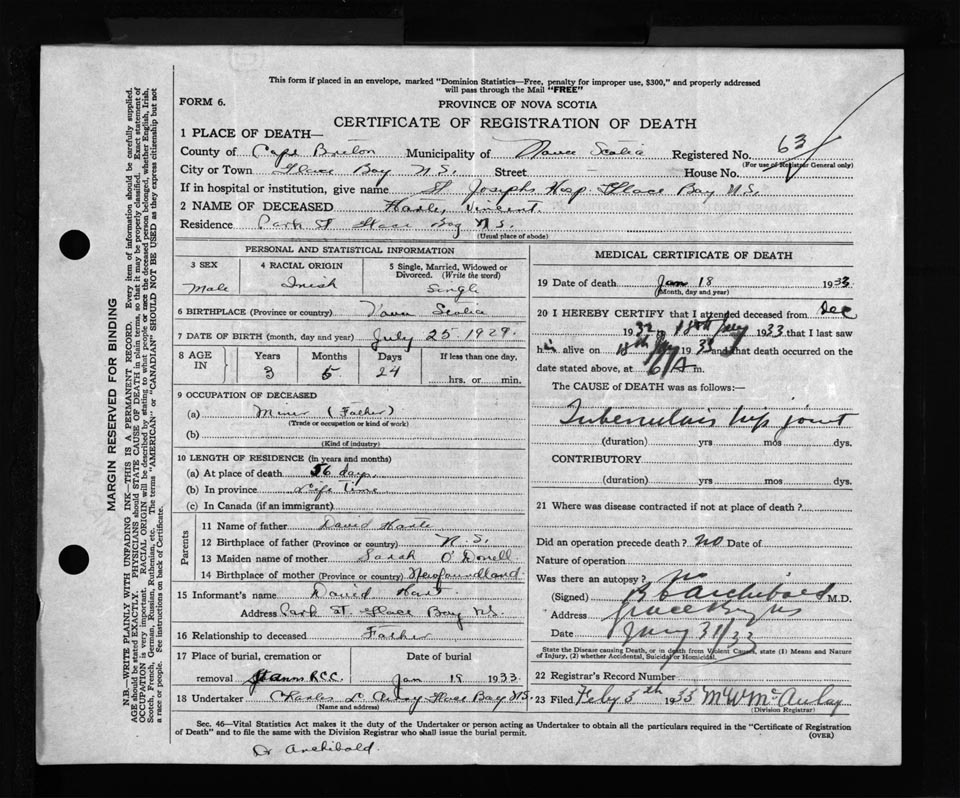 This form if placed in an envelope, marked "Dominion Statistics—Free, penalty for improper use, $300," and properly addressed
will pass through the Mail "FREE"
FORM 6.
PROVINCE OF NOVA SCOTIA
CERTIFICATE OF REGISTRATION OF DEATH
1 PLACE OF DEATH—
County of Cape Breton Municipality of Nova Scotia Registered No. 63
(For use of Registrar General only)
City or Town Glace Bay N.S. Street House No.
If in hospital or institution, give name St Josephs Hosp Glace Bay N.S.
2 NAME OF DECEASED Vincent.
Residence Park St Glace Bay N.S.
(Usual place of abode)
PERSONAL AND STATISTICAL INFORMATION
3 SEX 4 RACIAL ORIGIN 5 Single, Married, Widowed or
Divorced. (Write the word)
Male Irish Single
6 BIRTHPLACE (Province or country) Nova Scotia
7 DATE OF BIRTH (month, day and year) July 25 1929.
8 AGE IN Years Months Days If less than one day.
3 5 24 hrs. or min.
9 OCCUPATION OF DECEASED
(a) Miner (Father)
(Trade or occupation or kind of work)
(b)
(Kind of industry)
10 LENGTH OF RESIDENCE (in years and months)
(a) At place of death 56 days
(b) In province Life Time
(c) In Canada (if an immigrant)
Parents
11 Name of father David
12 Birthplace of father (Province or country) N.S.
13 Maiden name of mother Sarah O'Donell
14 Birthplace of mother (Province or country) Newfoundland
15 Informant's name David
Address Park St. Glace Bay N.S.
16 Relationship to deceased Father
17 Place of burial, cremation or removal Date of burial
St Anns R.C.C. Jan 19 1933.
18 Undertaker Charles Glace Bay N.S.
(Name and address)
MEDICAL CERTIFICATE OF DEATH
19 Date of death Jan 18 1933
(Month, day and year)
20 I HEREBY CERTIFY that I attended deceased from Dec
1932 to 18th Jany 1933 and that I last saw
him alive on 18th Jany 1933 and that death occurred on the
date stated above, at 6 A m.
The CAUSE OF DEATH was as follows:—
Tuberculosis hip joint
(duration) yrs mos dys.
CONTRIBUTORY
(duration) yrs. mos. dys.
21 Where was disease contracted if not at place of death?
Did an operation precede death? no Date of
Nature of operation
Was there an autopsy? no
(Signed) Archibald M.D.
Address Glace Bay NS
Date Jany 31/33
State the Disease causing Death, or in death from Violent Causes, state (1) Means and Nature
of Injury, (2) whether Accidental, Suicidal or Homicidal.
22 Registrar's Record Number
23 Filed Feby 5th 1933 M W McAulay
(Division Registrar)
Sec. 46—Vital Statistics Act makes it the duty of the Undertaker or person acting as Undertaker to obtain all the particulars required in the "Certificate of Registration
of Death" and to file the same with the Division Registrar who shall issue the burial permit.
(OVER)
Dr Archibald.
MARGIN RESERVED FOR BINDING
N.B.—WRITE PLAINLY WITH UNFADING INK—THIS IS A PERMANENT RECORD. Every item of information should be carefully supplied.
AGE should be stated EXACTLY. PHYSICIANS should STATE CAUSE OF DEATH in plain terms, so that it may be properly classified. Exact statement of
OCCUPATION is very important. RACIAL ORIGIN will be described by stating to what people or race the deceased person belonged, whether English, Irish,
Scotch, French, German, Russian, Ruthenian, etc. The terms "AMERICAN" or "CANADIAN" SHOULD NOT BE USED as they express citizenship but not
a race or people. See instructions on back of Certificate.